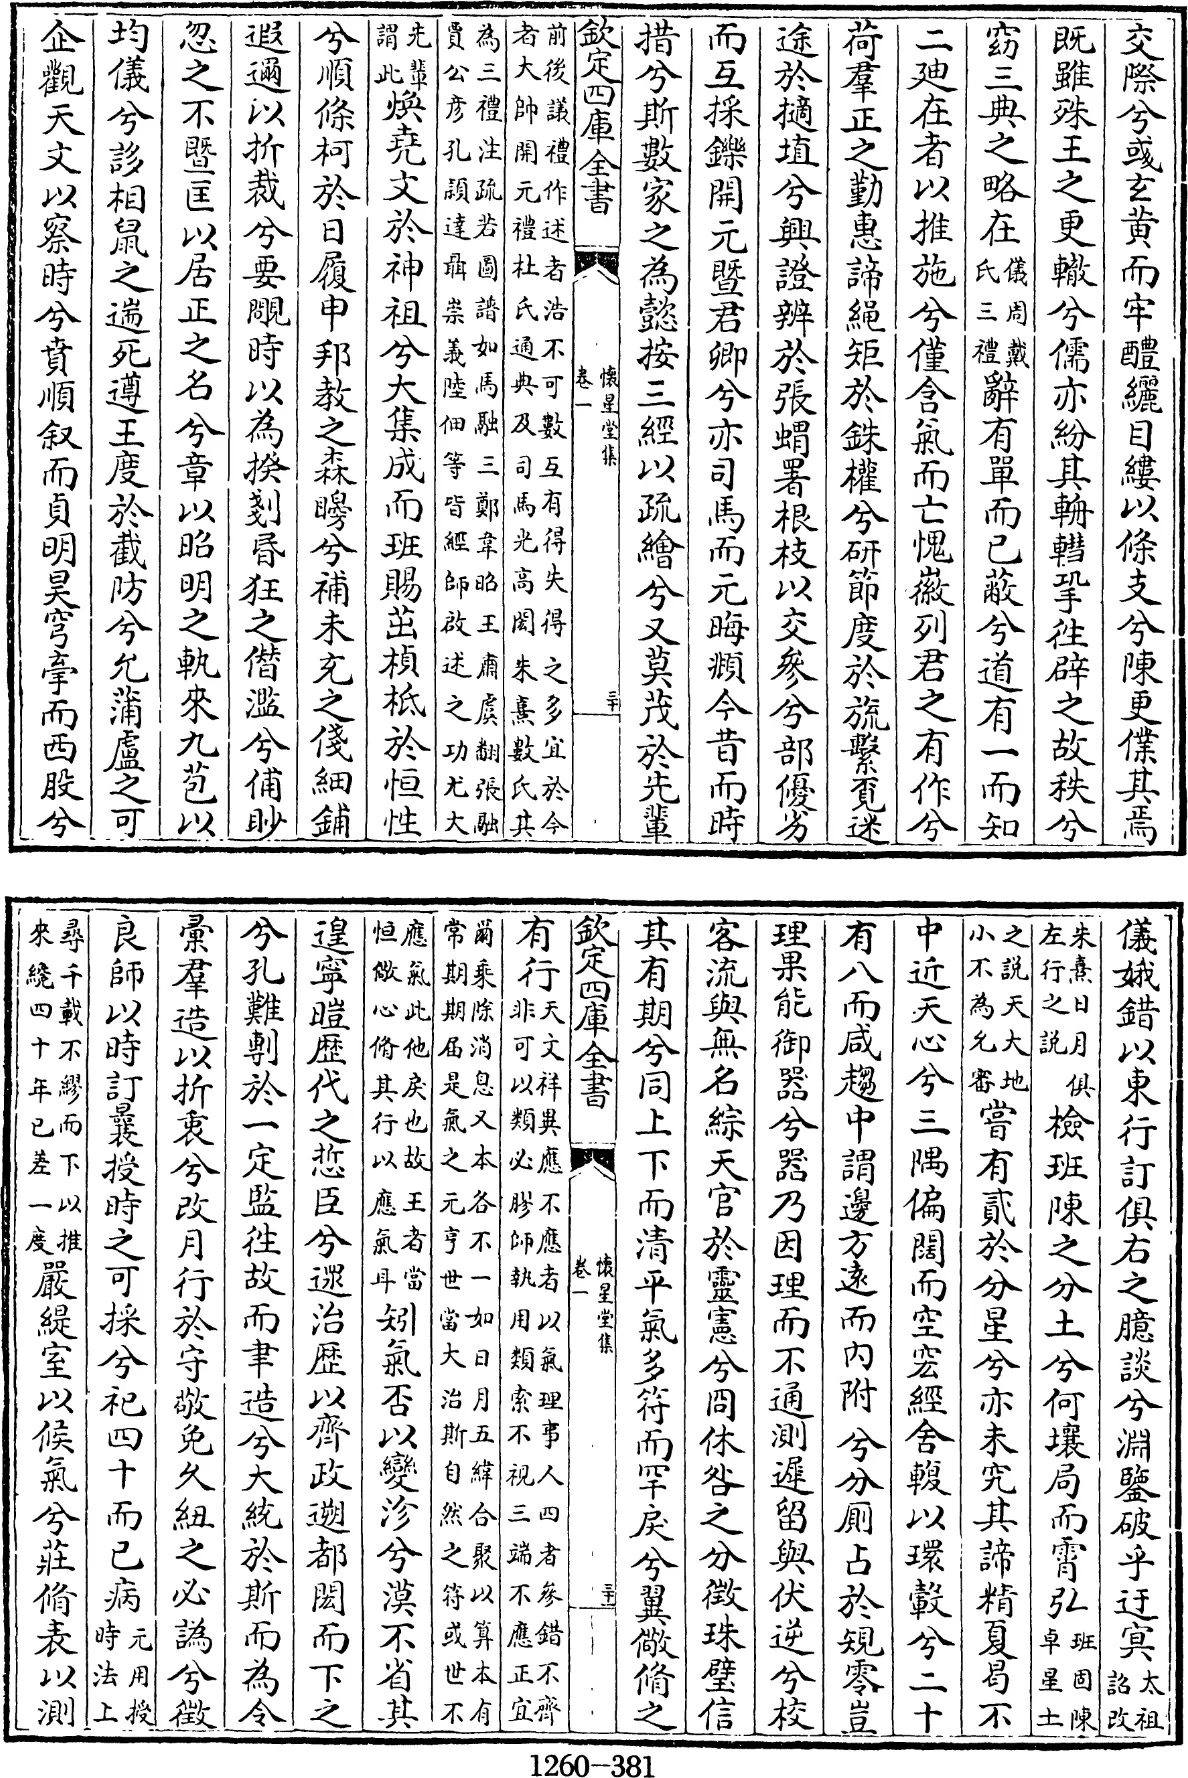 交際兮或玄黄而牢醴纚目縷以條支兮陳更僕其焉
既雖殊王之更轍兮儒亦紛其軵轊㧬徃辟之故秩兮
窈三典之略在儀周戴氏三禮辭有單而已蔽兮道有一而知
二廸在者以推施兮僅含氣而亡愧徽列君之有作兮
荷羣正之勤惠諦繩矩於銖權兮研節度於旒繫覔迷
途於擿埴兮興證辨於張蝟署根枝以交參兮部優劣
而互採鑠開元暨君卿兮亦司馬而元晦頫今昔而時
措兮斯數家之為懿按三經以疏繪兮又莫茂於先輩
欽定四庫全書
懷星堂集
卷一
三十
前後議禮作述者浩不可數互有得失得之多宜於今
者大帥開元禮杜氏通典及司馬光高閎朱熹數氏其
為三禮注疏若圖譜如馬融三鄭韋昭王肅虞翻張融
賈公彦孔頴達聶崇義陸佃等皆經師啟述之功尤大
先輩謂此煥堯文於神祖兮大集成而班賜茁楨柢於恒性
兮順條柯於日履申邦教之森疇兮補未充之俴細鋪
遐邇以折裁兮要覞時以為揆剗昬狂之僭濫兮俌眇
忽之不暨匡以居正之名兮章以昭明之軌來九苞以
均儀兮診相鼠之遄死遵王度於截防兮允蒲盧之可
企觀天文以察時兮賁順叙而貞明昊穹臺而西股兮
儀娥錯以東行訂俱右之臆談兮淵鑒破乎迂冥太祖詔改
朱熹日月俱左行之説檢班陳之分土兮何壤局而霄弘班固陳卓星土
之説天大地小不為允審嘗有貳於分星兮亦未究其諦精夏曷不
中近天心兮三隅偏闊而空宏經舍輹以環轂兮二十
有八而咸趨中謂邊方遠而内附兮分厠占於規零豈
理果能御器兮器乃因理而不通測遲留與伏逆兮校
客流與無名綜天官於靈憲兮問休咎之分徵珠璧信
其有期兮同上下而清平氣多符而罕戾兮翼儆脩之
欽定四庫全書
懷星堂集
卷一
三十一
有行天文祥異應不應者以氣理事人四者參錯不齊
非可以類必膠師執用類索不視三端不應正宜
爾乘除消息又本各不一如日月五緯合聚以算本有
常期期届是氣之元亨世當大治斯自然之符或世不
應氣此他戾也故王者當恒儆心脩其行以應氣耳矧氣否以變沴兮漠不省其
遑寧暟歴代之悊臣兮遝治歴以齊政遡都閎而下之
兮孔難剸於一定監徃故而聿造兮大統於斯而為令
彚羣造以折衷兮改月行於守敬免久紐之必譌兮徵
良師以時訂曩授時之可採兮祀四十而已病元用授時法上
尋千載不繆而下以推來纔四十年已差一度嚴緹室以候氣兮莊脩表以測
1260-381